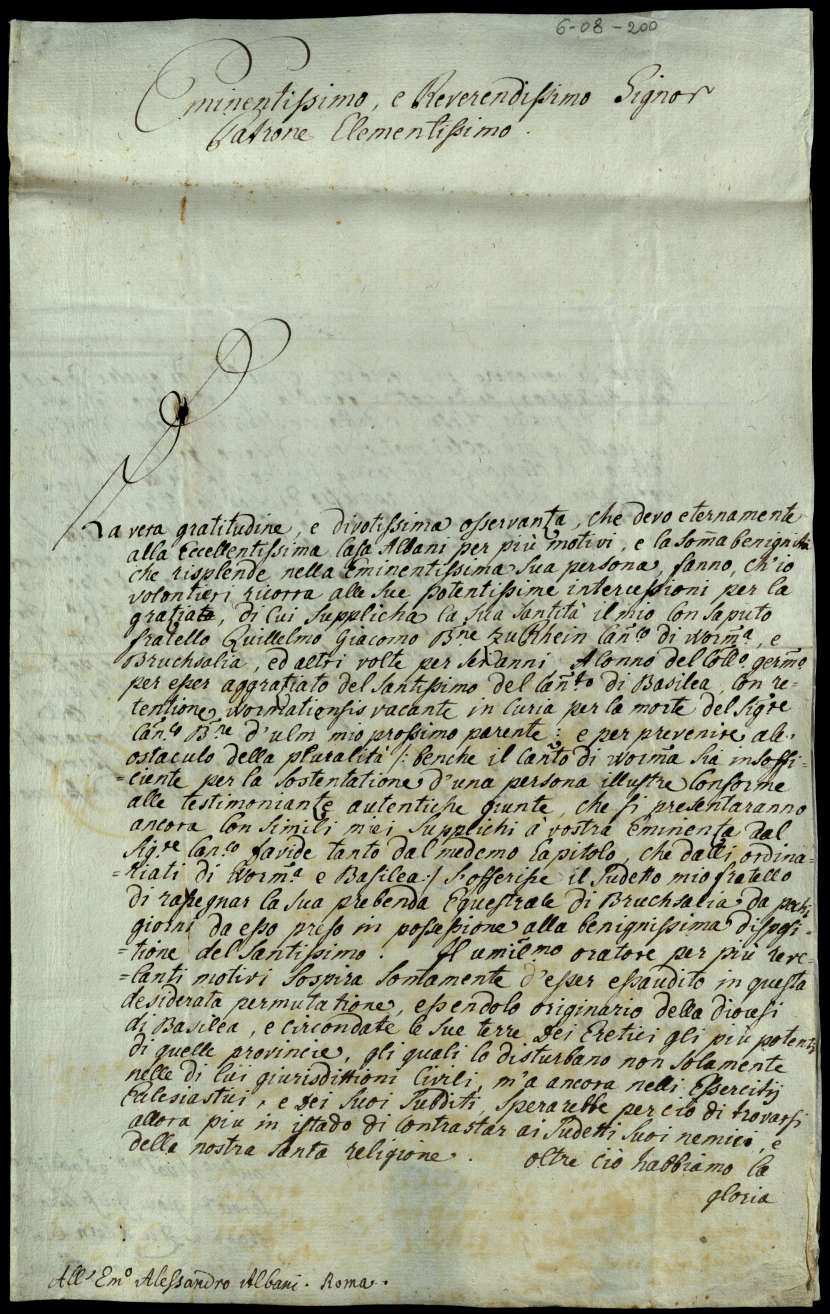 6-08-200
Eminentissimo, e Reverendissimo Signor
Patrone Clementissimo.
La vera gratitudine, e divotissima osservanza, che devo eternamente
alla Eccellentissima Casa Albani per più motivi, e la som̃a benignità
che risplende nella Eminentissima Sua persona, fanno, ch'io
volontieri ricorra alle Sue potentissime intercessioni per la
gratia, di cui Supplicha la Sua Santità il mio Consaputo
fratello Guillelmo Giacomo Bne Zu Rhein Can̄co di Worm̃a, e
Bruchsalia, ed altri volte per Sei anni Alonno del Collo germo
per esser aggratiato del Santissimo del Can̄to di Basilea, Con re-
tentione Wormationsis vacante in Curia per la morte del Sigre
Can.co Bne d'ulm mio prossimo parente: e per prevenire al
ostaculo della pluralità /: benche il Can̄to di Worm̃a Sia insoffi-
=ciente per la Sostentatione d'una persona illustre Conforme
alle testimoniantze autentiche giunte, che Si presentaranno
ancora Con Simili miei Supplichi à vostra Eminenza dal
Sigre Can.co Favide tanto dal medemo Capitolo, che dalli ordina-
=riati di Worm̃a e Basilea :/ S'offerisse il Sudetto mio fratello
di rassegnar la Sua prebenda Equestrale di Bruchsalia da pochi
giorni da esso preso in possessione alla benignissima disposi-
=tione del Santissimo. Il umilmo oratore per più rele-
=canti motivi Sospira Somamente d'esser essaudito in questa
desiderata permutatione, essendolo originario della diocesi
di Basilea, e circondate le Sue terre dei Eretici gli più potenti
di quelle provincie, gli quali lo disturbano non Solamente
nelle di lui giurisdittioni Civili, m'a ancora nelli Essercitij
Eclesiastici, e dei Suoi Sudditi, Sperarebbe perciò di trovarsi
allora più in istado di Contrastar ai Sudetti Suoi nemici, e
della nostra Santa religione. oltre ciò habbiamo la
gloria
All' Emo Alessandro Albani. Roma.